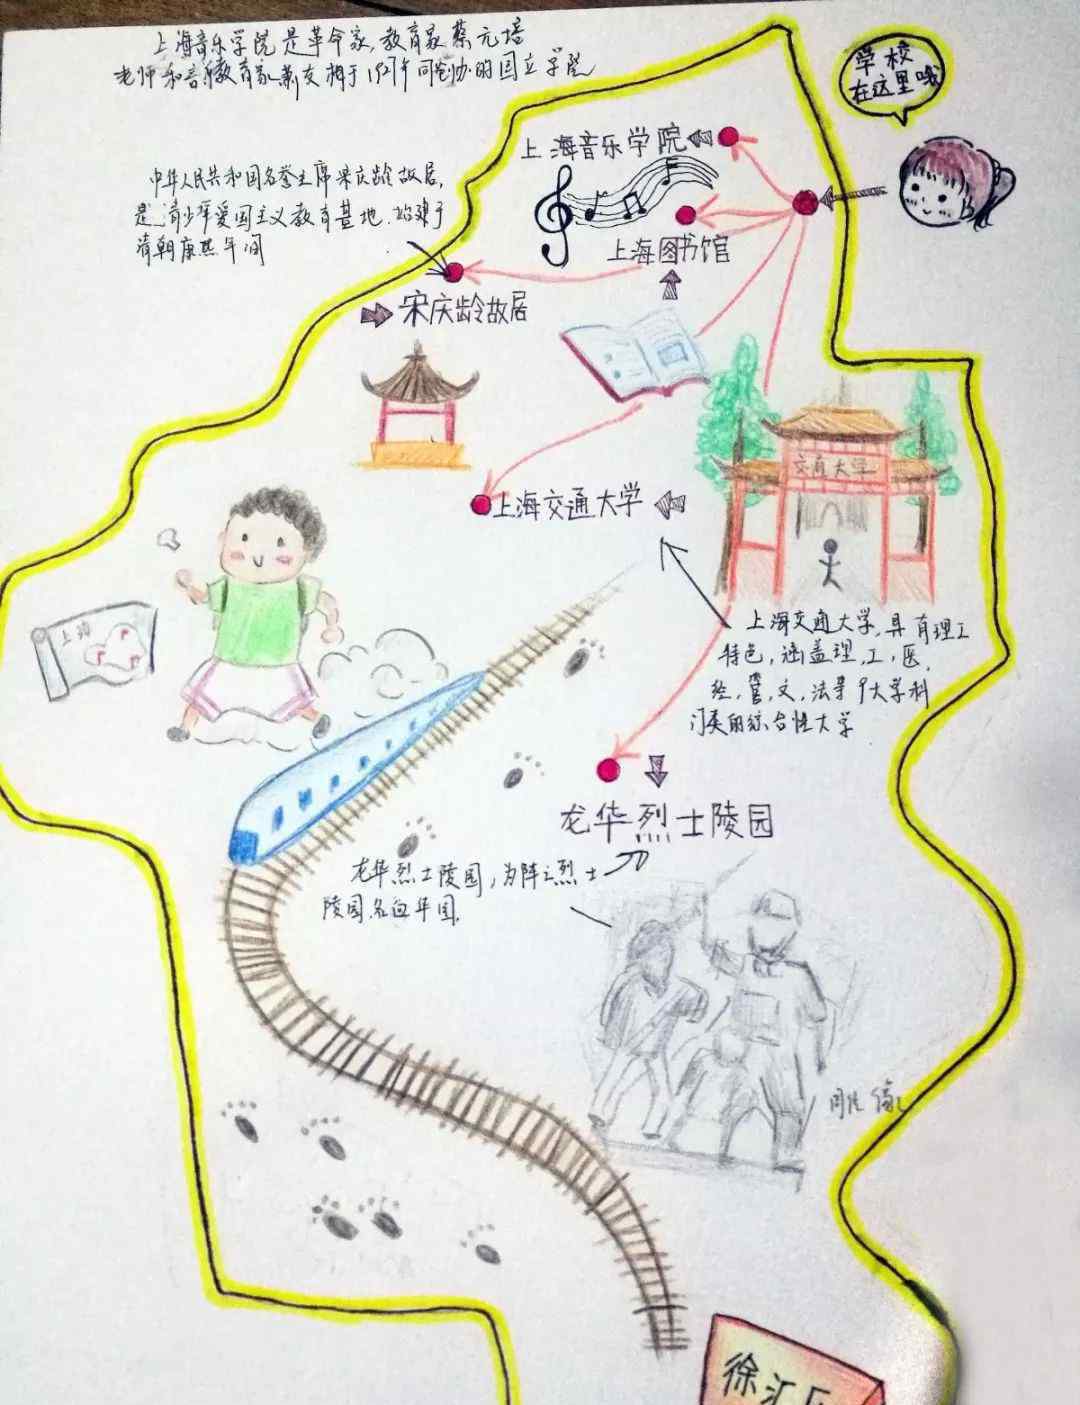 上海音乐学院是革命家,教育家蔡元培
老师和音乐教育家萧友梅于1927年同创办的国立学院
学校
在这里哦
上海音乐学院
中华人民共和国名誉主席宋庆龄故居,
是青少年爱国主义教育基地.始建于
清朝康熙年间
上海图书馆
宋庆龄故居
交通大学
上海交通大学
上海
上海交通大学,具有理工
特色,涵盖理,工,医,
经,管,文,法等9大学科
门类的综合性大学
龙华烈士陵园
龙华烈士陵园,为阵亡烈士
陵园.名血华园.
徐汇区